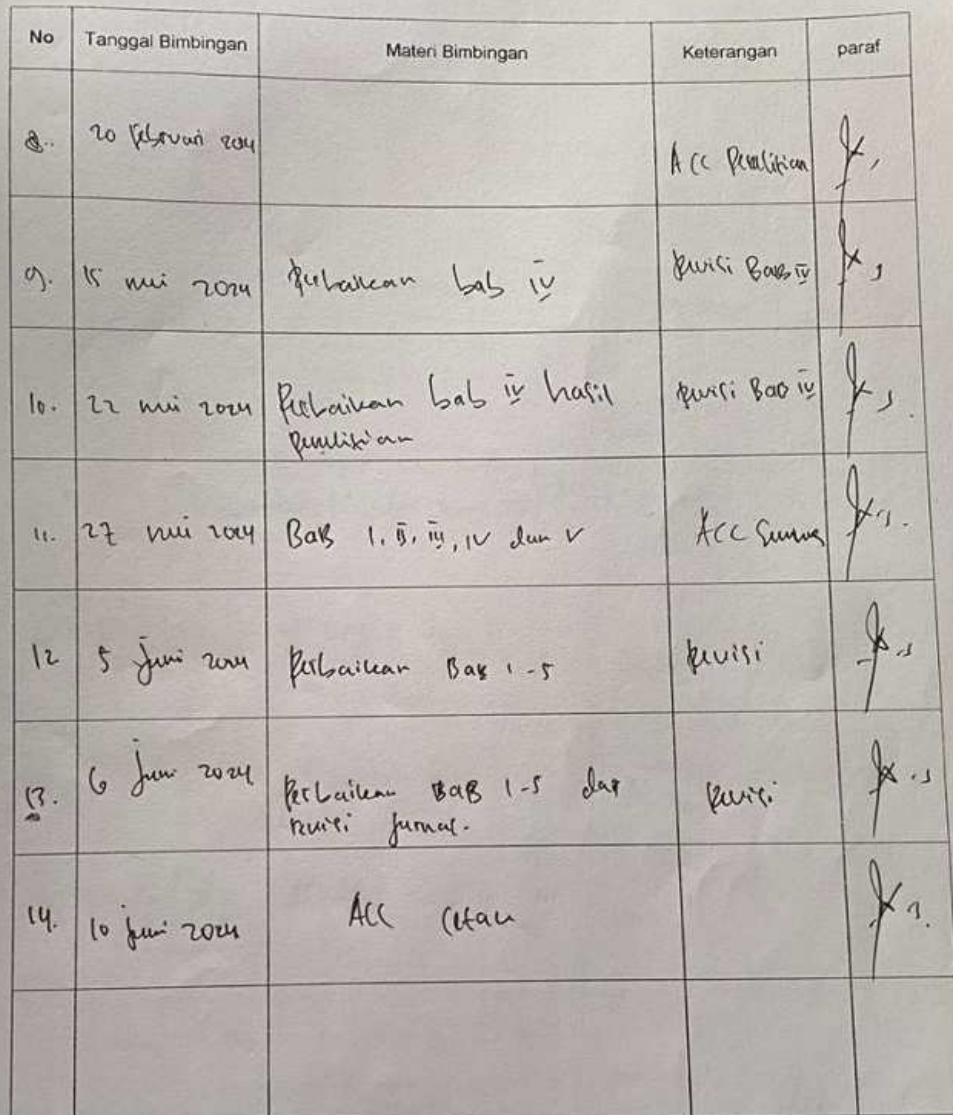 No Tanggal Bimbingan Materi Bimbingan Keterangan paraf
8. 20 Februari 2024 ACC Penelitian
9. 15 mei 2024 Perbaikan bab IV Revisi Bab IV
10. 22 mei 2024 Perbaikan bab IV hasil Revisi Bab IV
penelitian
11. 27 mei 2024 BaB I, II, III, IV dan V ACC
12 5 Juni 2024 Perbaikan Bab 1-5 Revisi
13. 6 Juni 2024 Perbaikan BAB 1-5 dan Revisi
revisi jurnal.
14. 10 juni 2024 ACC Cetak